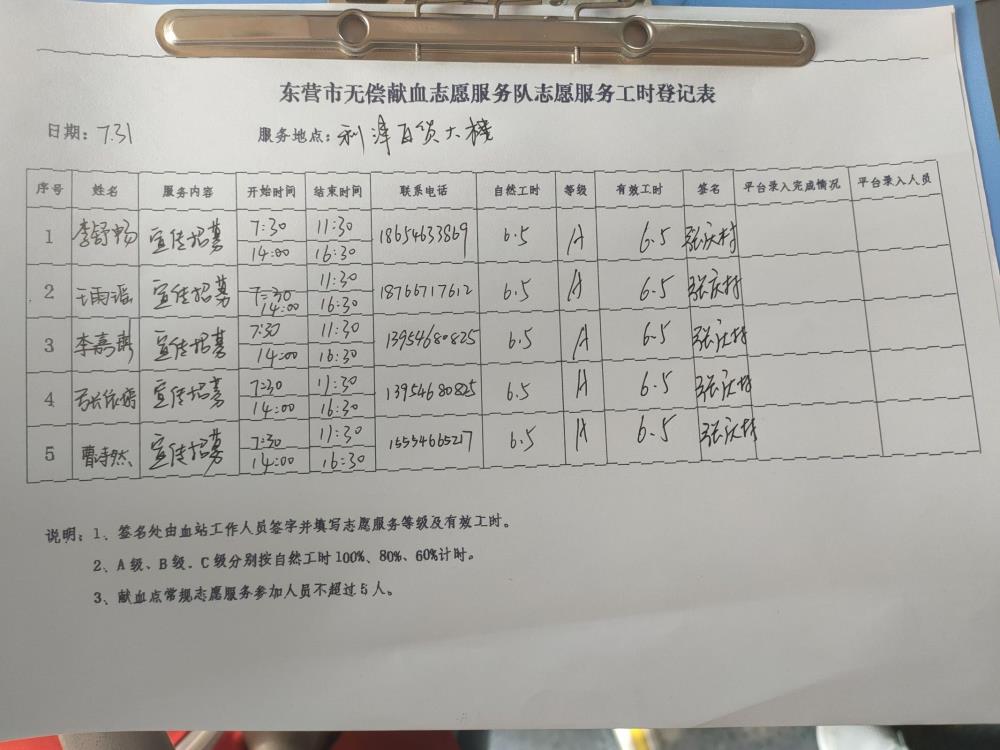 东营市无偿献血志愿服务队志愿服务工时登记表
日期：7.31 服务地点：利津百货大楼
序号 姓名 服务内容 开始时间 结束时间 联系电话 自然工时 等级 有效工时 签名 平台录入完成情况 平台录入人员
1 李舒畅 宣传招募 7:30 11:30 18654633869 6.5 A 6.5 张庆村
14:00 16:30
2 王雨瑶 宣传招募 7:30 11:30 18766717612 6.5 A 6.5 张庆村
14:00 16:30
3 李嘉骐 宣传招募 7:30 11:30 13954680825 6.5 A 6.5 张庆村
14:00 16:30
4 宣传招募 7:30 11:30 13954680825 6.5 A 6.5 张庆村
14:00 16:30
5 曹诗然 宣传招募 7:30 11:30 15554665217 6.5 A 6.5 张庆村
14:00 16:30
说明：1、签名处由血站工作人员签字并填写志愿服务等级及有效工时。
2、A级、B级．C级分别按自然工时100%、80%、60%计时。
3、献血点常规志愿服务参加人员不超过5人。